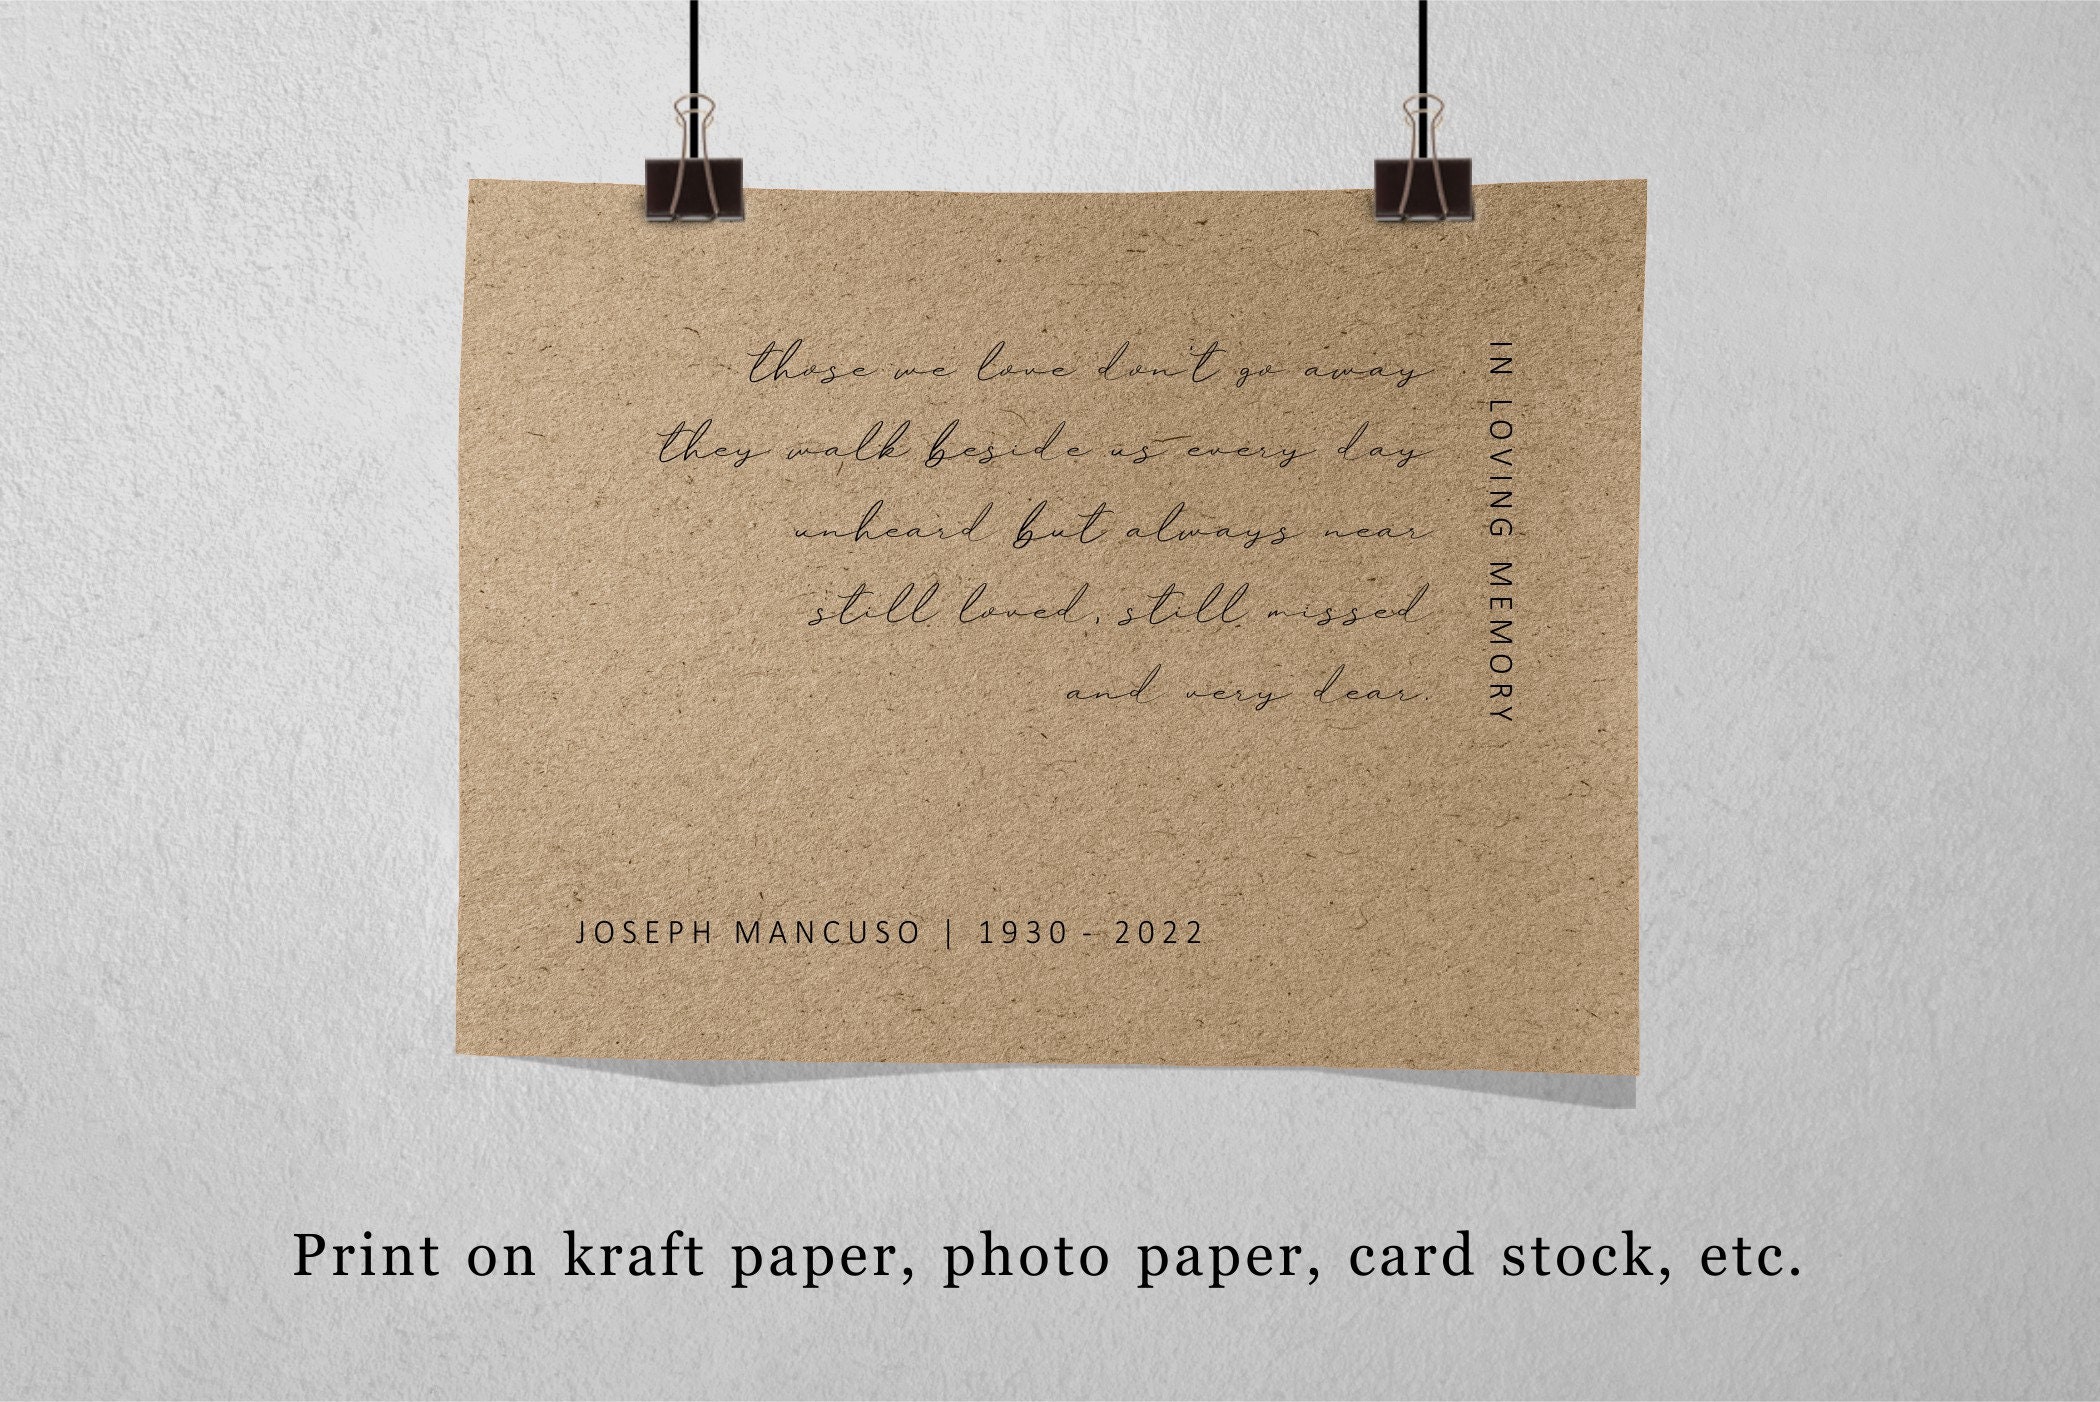 those we love don't go away
they walk beside us every day
unheard but always near
still loved, still missed
and very dear.
IN LOVING MEMORY
JOSEPH MANCUSO | 1930 - 2022
Print on kraft paper, photo paper, card stock, etc.